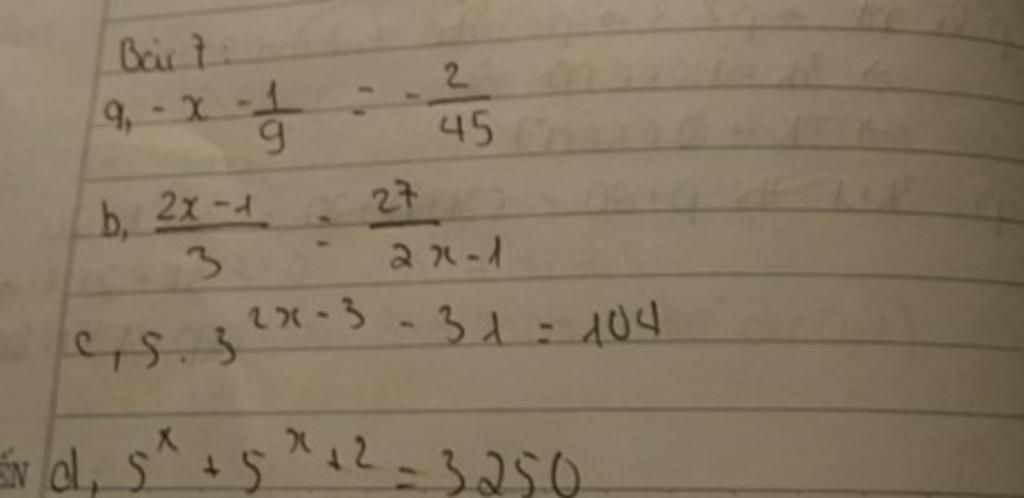 Bài 7:
a, - x - 1/9 = - 2/45
b, (2x-1)/3 = 27/(2x-1)
c, 5 . 3^(2x-3) - 31 = 104
d, 5^x + 5^(x+2) = 3250